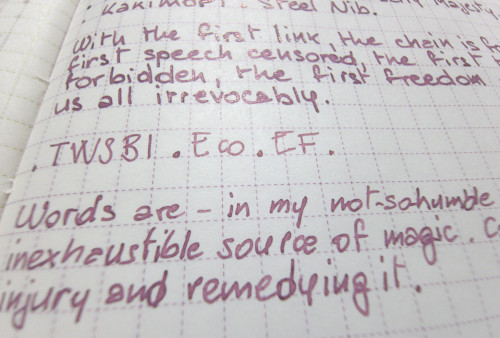 . Kakimori . Steel Nib. Majesty
With the first link, the chain is
first speech censored, the first
forbidden, the first freedom
us all irrevocably.
. TWSBI . Eco . EF .
Words are - in my not-sohumble
inexhaustible source of magic.
injury and remedying it.